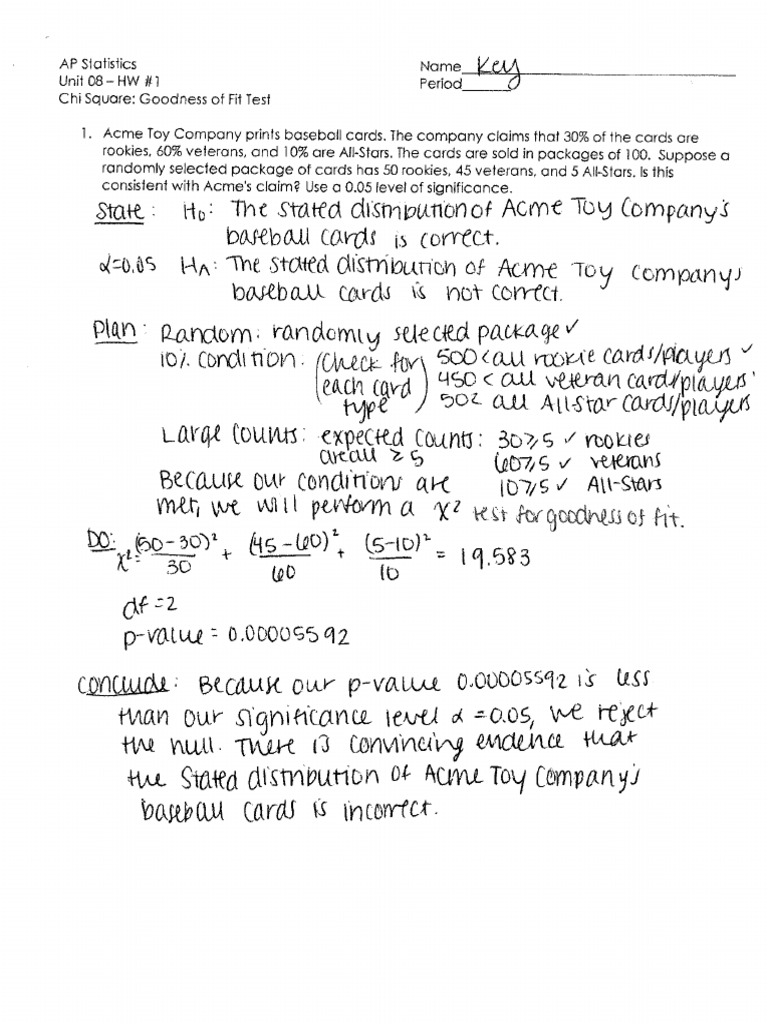 AP Statistics
Name Key
Unit 08 – HW #1
Period
Chi Square: Goodness of Fit Test
1. Acme Toy Company prints baseball cards. The company claims that 30% of the cards are
rookies, 60% veterans, and 10% are All-Stars. The cards are sold in packages of 100. Suppose a
randomly selected package of cards has 50 rookies, 45 veterans, and 5 All-Stars. Is this
consistent with Acme's claim? Use a 0.05 level of significance.
State: H₀: The stated distribution of Acme Toy Company's
baseball cards is correct.
α=0.05 Hᴀ: The stated distribution of Acme Toy Company's
baseball cards is not correct.
Plan: Random: randomly selected package ✓
10% condition: (Check for each card type) 500 < all rookie cards/players ✓
450 < all veteran cards/players
50 < all All-Star cards/players
Large Counts: expected counts: 30≥5 ✓ rookies
are all ≥ 5 60≥5 ✓ veterans
Because our conditions are 10≥5 ✓ All-Stars
met, we will perform a χ² test for goodness of fit.
DO: χ² = (50-30)²/30 + (45-60)²/60 + (5-10)²/10 = 19.583
df = 2
p-value = 0.00005592
Conclude: Because our p-value 0.00005592 is less
than our significance level α = 0.05, we reject
the null. There is convincing evidence that
the stated distribution of Acme Toy Company's
baseball cards is incorrect.